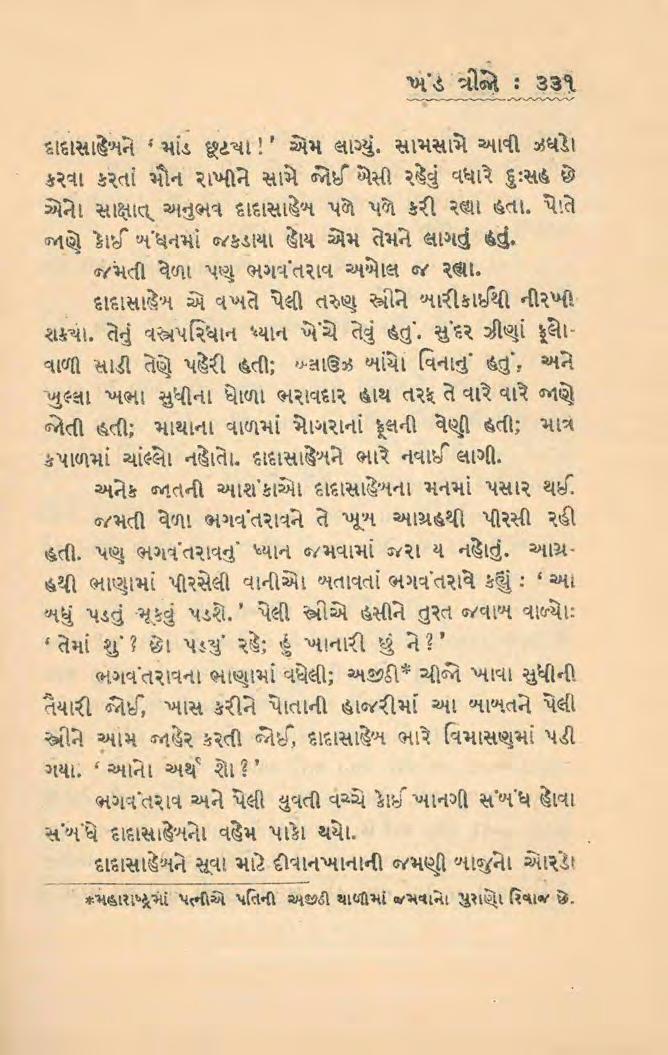 ખંડ ત્રીજો : ૩૩૧
દાદાસાહેબને ‘ માંડ છૂટયા ! ’ એમ લાગ્યું. સામસામે આવી ઝઘડો
કરવા કરતાં મૌન રાખીને સામે જોઈ બેસી રહેવું વધારે દુઃસહ છે
એનો સાક્ષાત્ અનુભવ દાદાસાહેબ પળે પળે કરી રહ્યા હતા. પોતે
જાણે કોઈ બંધનમાં જકડાયા હોય એમ તેમને લાગતું હતું.
જમતી વેળા પણ ભગવંતરાવ અબોલ જ રહ્યા.
દાદાસાહેબ એ વખતે પેલી તરુણ સ્ત્રીને બારીકાઈથી નીરખી
શકયા. તેનું વસ્ત્રપરિધાન ધ્યાન ખેંચે તેવું હતું. સુંદર ઝીણાં ફૂલો-
વાળી સાડી તેણે પહેરી હતી; બ્લાઉઝ બાંયો વિનાનું હતું, અને
ખુલ્લા ખભા સુધીના ધોળા ભરાવદાર હાથ તરફ તે વારે વારે જાણે
જોતી હતી; માથાના વાળમાં મોગરાનાં ફૂલની વેણી હતી; માત્ર
કપાળમાં ચાંલ્લો નહોતો. દાદાસાહેબને ભારે નવાઈ લાગી.
અનેક જાતની આશંકાઓ દાદાસાહેબના મનમાં પસાર થઈ.
જમતી વેળા ભગવંતરાવને તે ખૂબ આગ્રહથી પીરસી રહી
હતી. પણ ભગવંતરાવનું ધ્યાન જમવામાં જરા ય નહોતું. આગ્ર-
હથી ભાણામાં પીરસેલી વાનીઓ બતાવતાં ભગવંતરાવે કહ્યું : ‘ આ
બધું પડતું મૂકવું પડશે. ’ પેલી સ્ત્રીએ હસીને તુરત જવાબ વાળ્યોઃ
‘ તેમાં શું ? છો પડયું રહે; હું ખાનારી છું ને ? ’
ભગવંતરાવના ભાણામાં વધેલી; અજીઠી* ચીજો ખાવા સુધીની
તૈયારી જોઈ, ખાસ કરીને પોતાની હાજરીમાં આ બાબતને પેલી
સ્ત્રીને આમ જાહેર કરતી જોઈ, દાદાસાહેબ ભારે વિમાસણમાં પડી
ગયા. ‘ આનો અર્થ શો ? ’
ભગવંતરાવ અને પેલી યુવતી વચ્ચે કોઈ ખાનગી સંબંધ હોવા
સંબંધે દાદાસાહેબનો વહેમ પાકો થયો.
દાદાસાહેબને સૂવા માટે દીવાનખાનાની જમણી બાજુનો ઓરડો
*મહારાષ્ટ્રમાં પત્નીએ પતિની અજીઠી થાળીમાં જમવાનો પુરાણો રિવાજ છે.